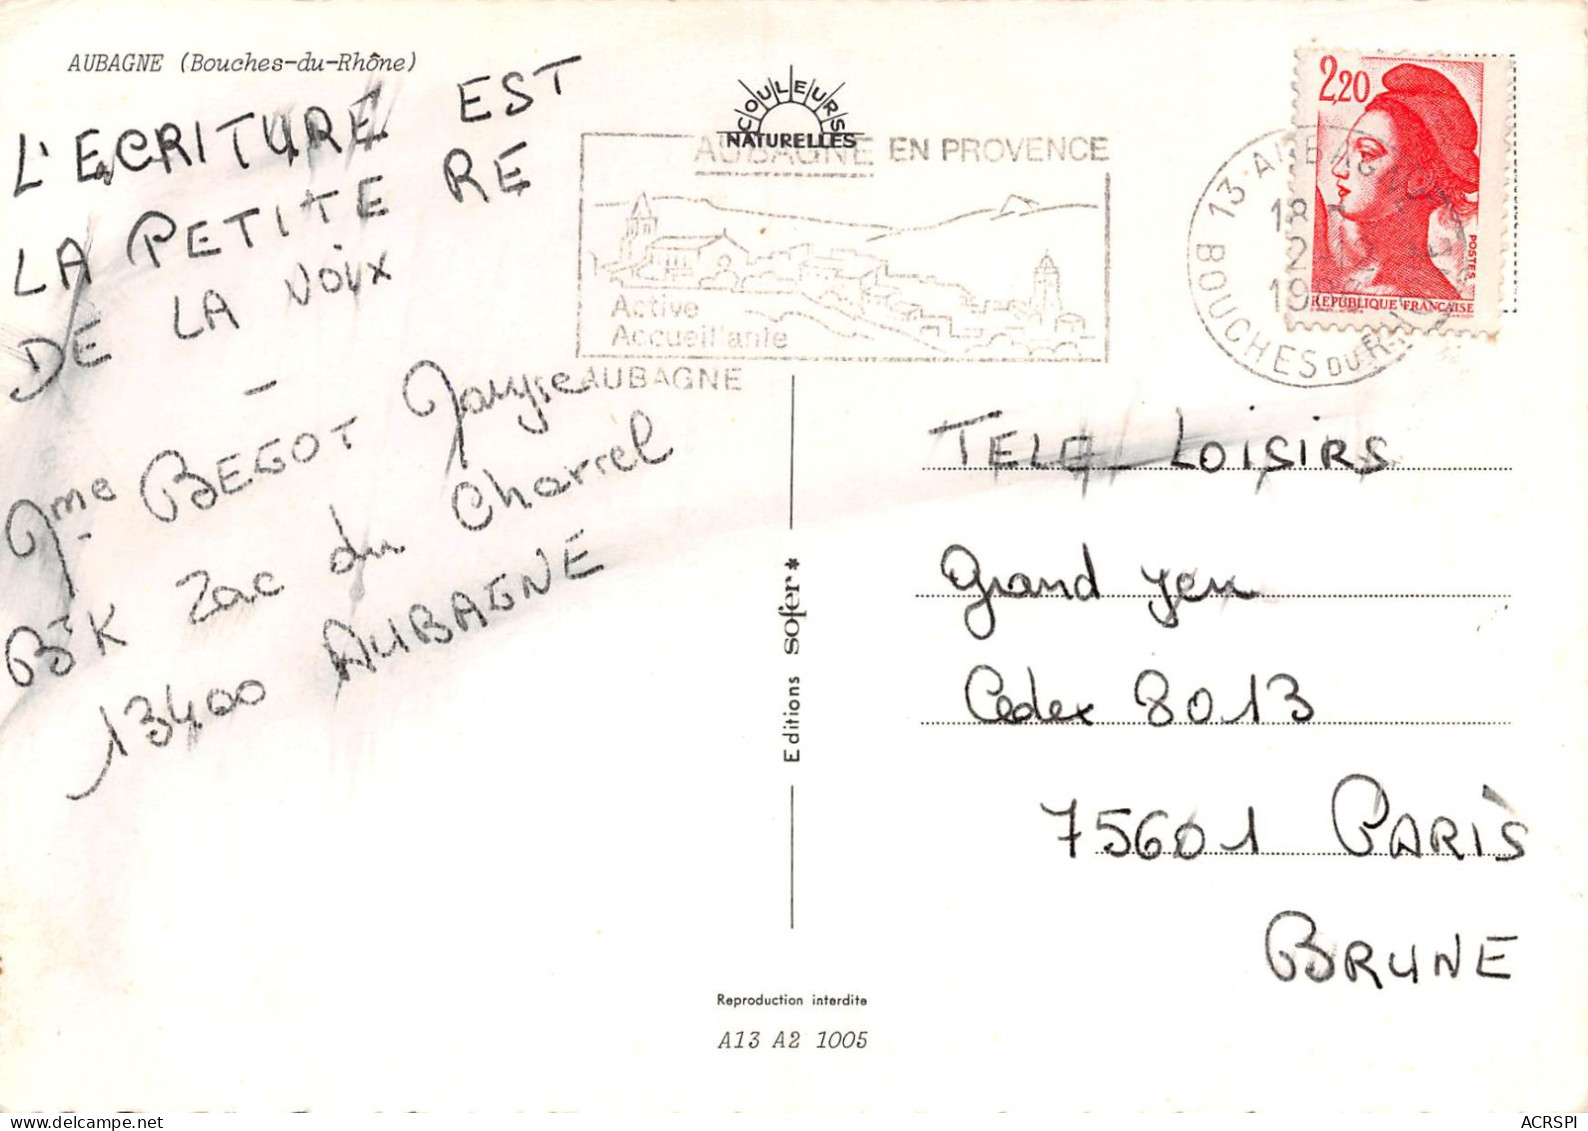 AUBAGNE (Bouches-du-Rhône)
L'ECRITURE EST
LA PETITE RE
DE LA VOIX
-
Mme BEGOT
BtK Zac du Charrel
13400 AUBAGNE
COULEURS
NATURELLES
AUBAGNE EN PROVENCE
Active
Accueillante
AUBAGNE
13 AUBAGNE
18
12
19
BOUCHES DU RH
2,20
POSTES
REPUBLIQUE FRANCAISE
TELE-LOISIRS
Grand Jeu
Cedex 8013
75601 PARIS
BRUNE
Editions sofer*
Reproduction interdite
A13 A2 1005
ACRSPI